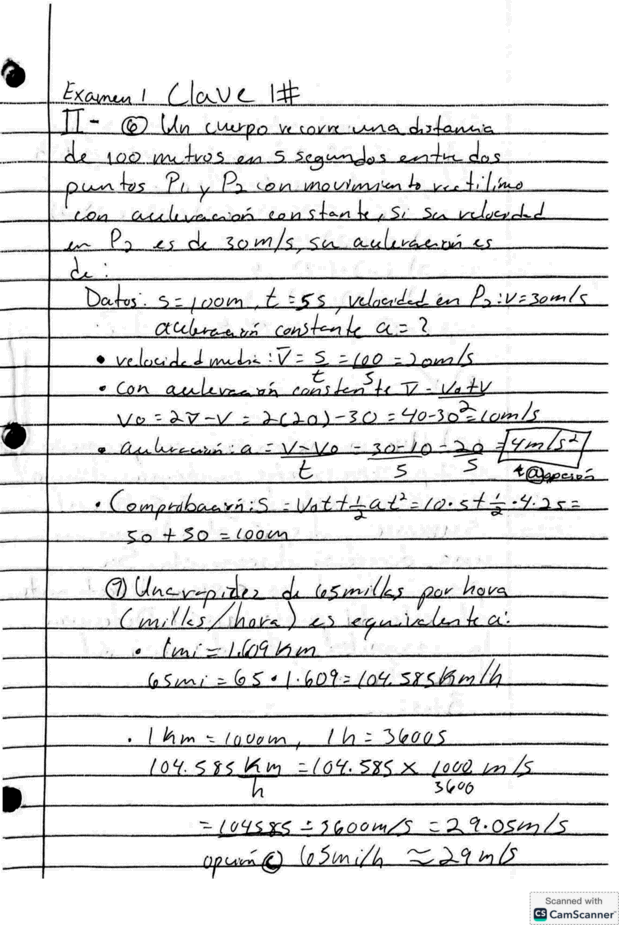 Examen 1 Clave 1#
II- ⑥ Un cuerpo recorre una distancia
de 100 metros en 5 segundos entre dos
puntos P1 y P2 con movimiento rectilineo
con aceleración constante, si su velocidad
en P2 es de 30m/s, su aceleración es
de:
Datos: s=100m, t=5s, velocidad en P2: v=30m/s
aceleración constante a=?
• velocidad media: V̅ = s/t = 100/5 = 20m/s
• con aceleración constante V̅ = Vo+V/2
Vo = 2V̅-V = 2(20)-30 = 40-30 = 10m/s
• aceleración: a = V-Vo/t = 30-10/5 = 20/5 = 4m/s²
opción
• Comprobación: S = Vot+½at² = 10·5+½·4·25=
50+50=100m
⑦ Una rapidez de 65 millas por hora
(millas/hora) es equivalente a:
• 1mi=1.609Km
65mi=65•1.609=104.585Km/h
• 1Km=1000m, 1h=3600s
104.585 Km/h = 104.585 × 1000/3600 m/s
= 104585÷3600m/s = 29.05m/s
opción ⓒ 65mi/h ≈ 29m/s
Scanned with
CS CamScanner